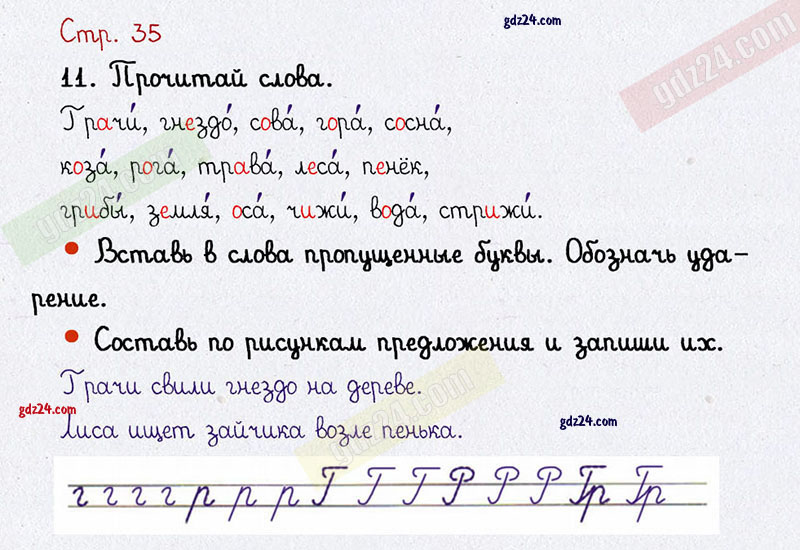 gdz24.com
Стр. 35
gdz24.com
11. Прочитай слова.
Грачи́, гнездо́, сова́, гора́, сосна́,
коза́, рога́, трава́, леса́, пенёк,
gdz24.com
грибы́, земля́, оса́, чижи́, вода́, стрижи́.
• Вставь в слова пропущенные буквы. Обозначь уда-
рение.
• Составь по рисункам предложения и запиши их.
Грачи свили гнездо на дереве.
gdz24.com
gdz24.com
gdz24.com
Лиса ищет зайчика возле пенька.
г г г г р р р Г Г Г Р Р Р Гр Гр